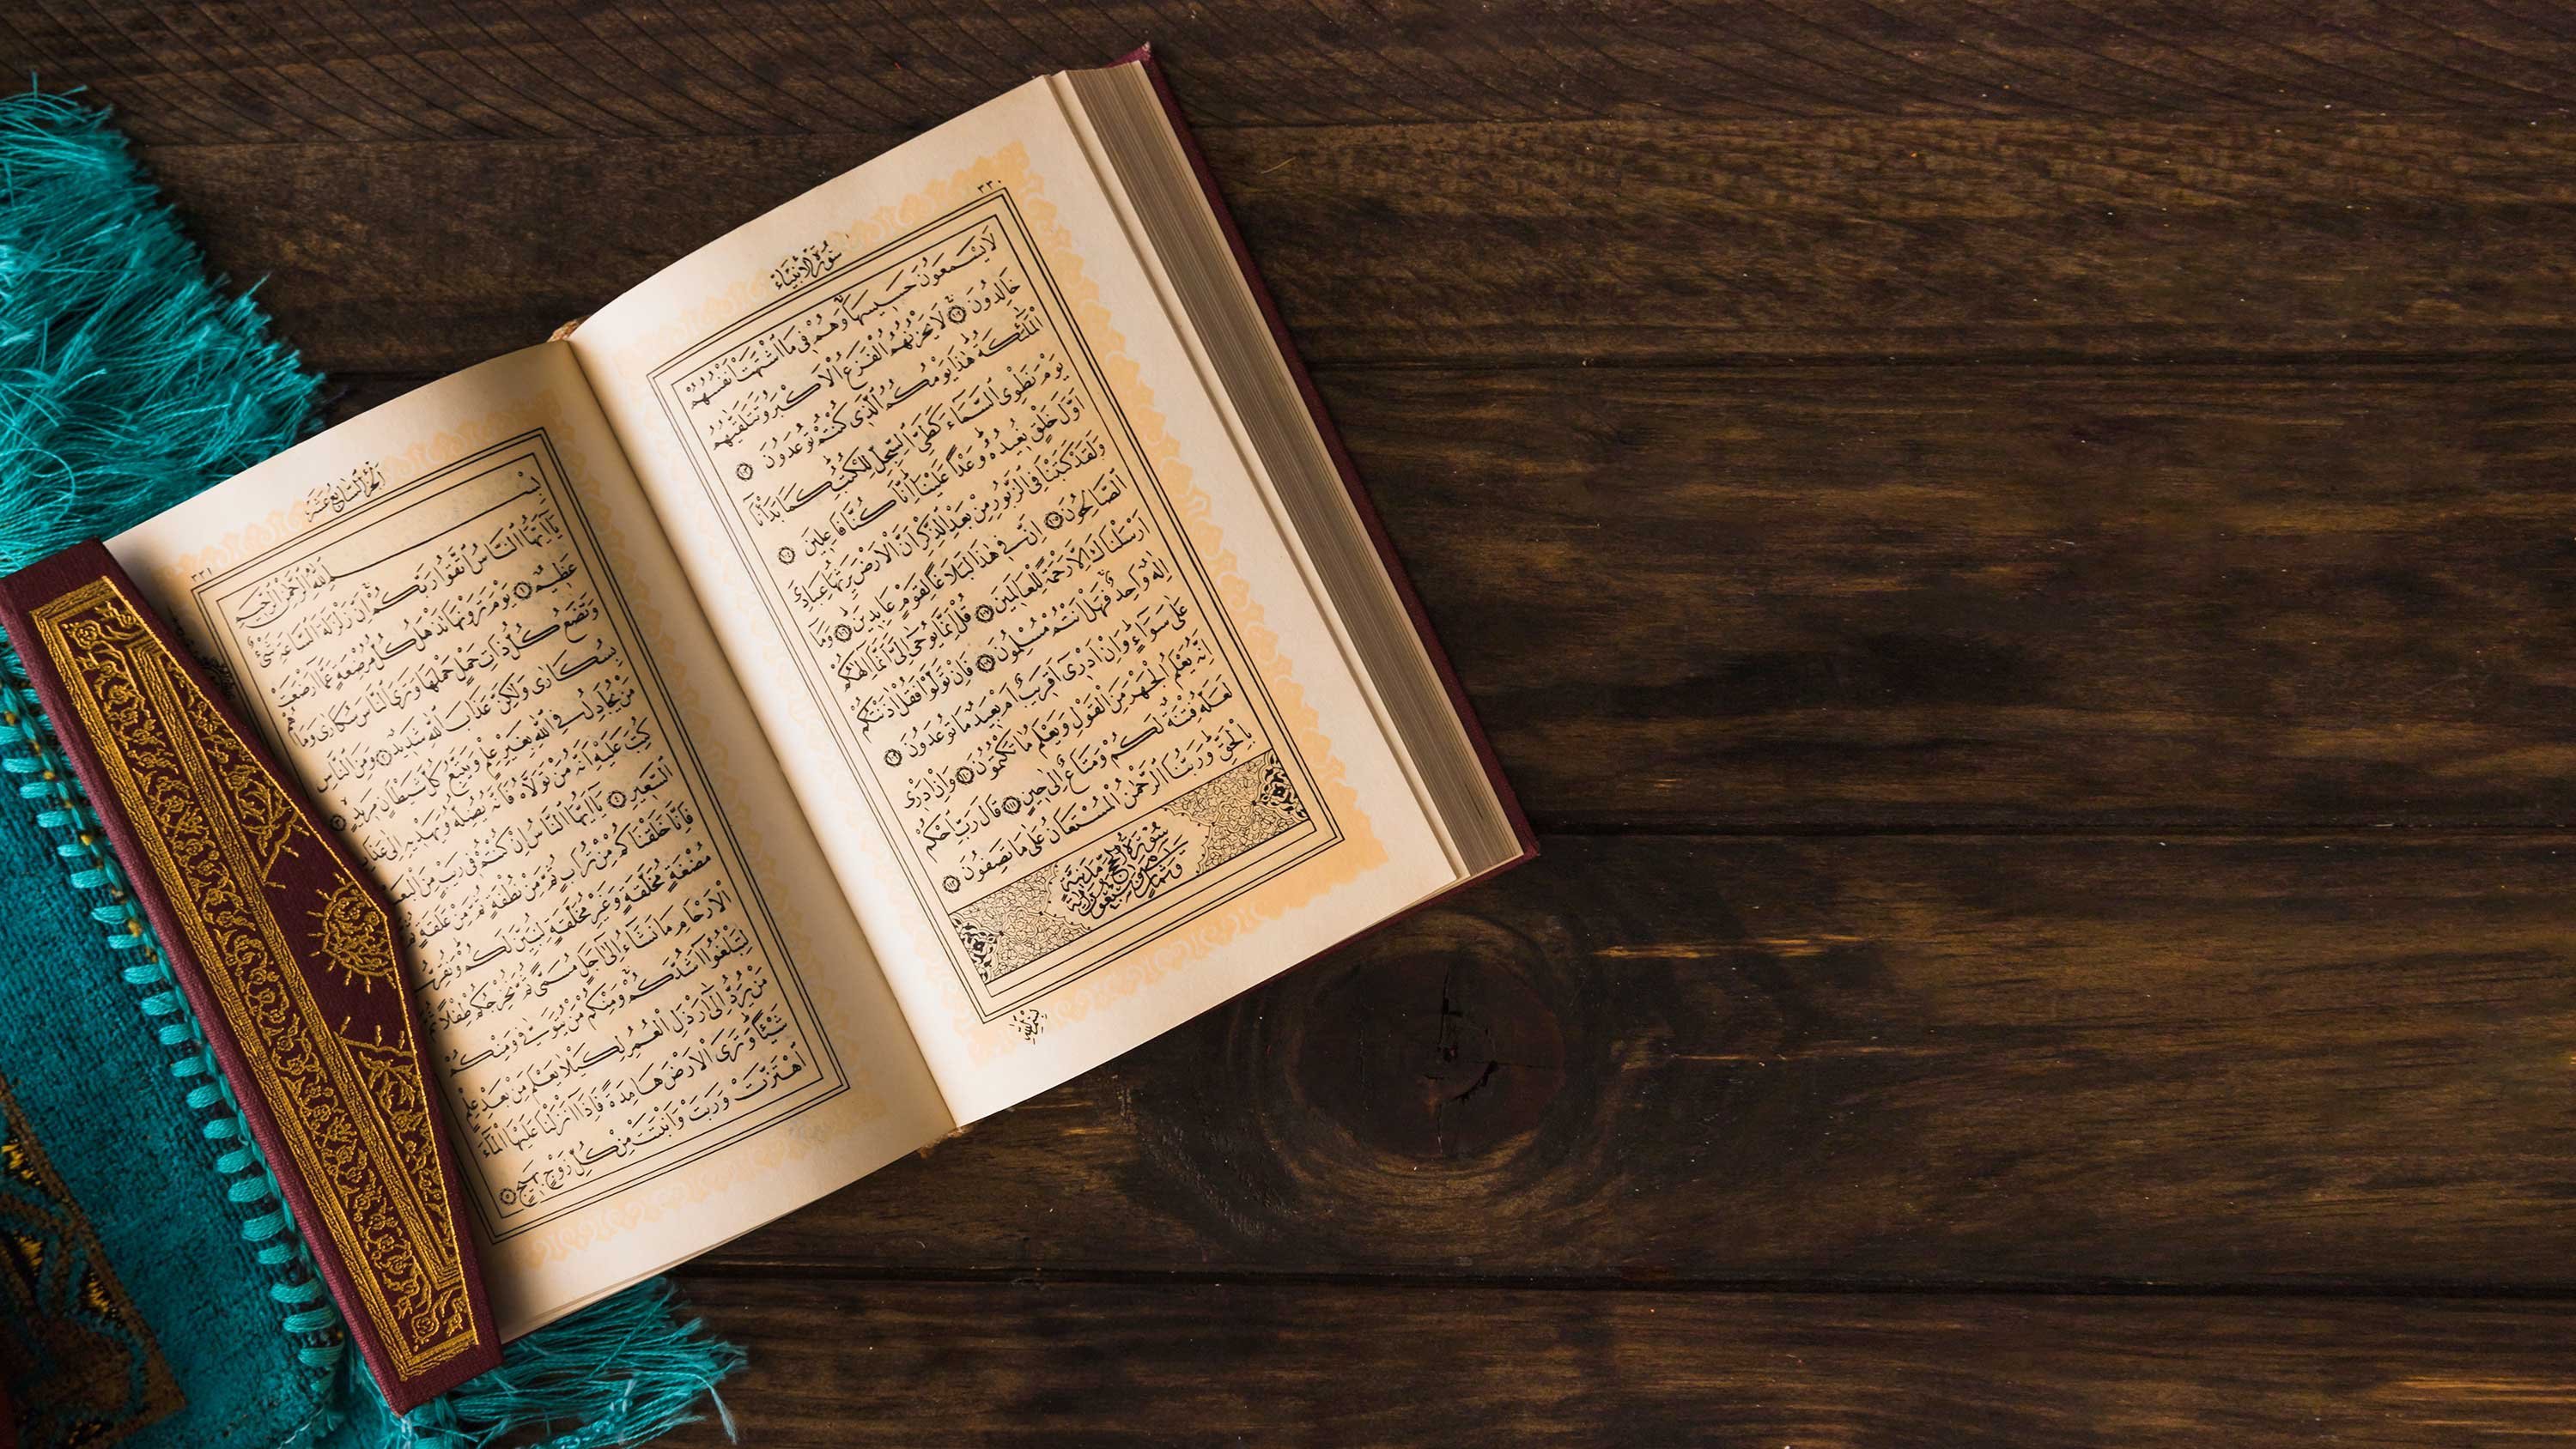 ٣٣٠
سُورَةُ الْأَنْبِيَاءِ
لَا يَسْمَعُونَ حَسِيسَهَا وَهُمْ فِي مَا اشْتَهَتْ أَنْفُسُهُمْ
خَالِدُونَ ١٠٢ لَا يَحْزُنُهُمُ الْفَزَعُ الْأَكْبَرُ وَتَتَلَقَّيٰهُمُ
الْمَلٰٓئِكَةُ هٰذَا يَوْمُكُمُ الَّذِي كُنْتُمْ تُوعَدُونَ ١٠٣
يَوْمَ نَطْوِي السَّمَاءَ كَطَيِّ السِّجِلِّ لِلْكُتُبِ كَمَا بَدَأْنَا
أَوَّلَ خَلْقٍ نُعِيدُهُ وَعْدًا عَلَيْنَا إِنَّا كُنَّا فَاعِلِينَ ١٠٤
وَلَقَدْ كَتَبْنَا فِي الزَّبُورِ مِنْ بَعْدِ الذِّكْرِ أَنَّ الْأَرْضَ يَرِثُهَا عِبَادِيَ
الصَّالِحُونَ ١٠٥ إِنَّ فِي هٰذَا لَبَلَاغًا لِقَوْمٍ عَابِدِينَ ١٠٦ وَمَا
أَرْسَلْنَاكَ إِلَّا رَحْمَةً لِلْعَالَمِينَ ١٠٧ قُلْ إِنَّمَا يُوحٰى إِلَيَّ أَنَّمَا إِلٰهُكُمْ
إِلٰهٌ وَاحِدٌ فَهَلْ أَنْتُمْ مُسْلِمُونَ ١٠٨ فَإِنْ تَوَلَّوْا فَقُلْ آذَنْتُكُمْ
عَلٰى سَوَاءٍ وَإِنْ أَدْرِي أَقَرِيبٌ أَمْ بَعِيدٌ مَا تُوعَدُونَ ١٠٩
إِنَّهُ يَعْلَمُ الْجَهْرَ مِنَ الْقَوْلِ وَيَعْلَمُ مَا تَكْتُمُونَ ١١٠ وَإِنْ أَدْرِي
لَعَلَّهُ فِتْنَةٌ لَكُمْ وَمَتَاعٌ إِلٰى حِينٍ ١١١ قَالَ رَبِّ احْكُمْ
بِالْحَقِّ وَرَبُّنَا الرَّحْمٰنُ الْمُسْتَعَانُ عَلٰى مَا تَصِفُونَ ١١٢
سُورَةُ الْحَجِّ مَدَنِيَّةٌ
٣٣١
الْجُزْءُ السَّابِعَ عَشَرَ
بِسْمِ اللّٰهِ الرَّحْمٰنِ الرَّحِيمِ
يَا أَيُّهَا النَّاسُ اتَّقُوا رَبَّكُمْ إِنَّ زَلْزَلَةَ السَّاعَةِ شَيْءٌ
عَظِيمٌ ١ يَوْمَ تَرَوْنَهَا تَذْهَلُ كُلُّ مُرْضِعَةٍ عَمَّا أَرْضَعَتْ
وَتَضَعُ كُلُّ ذَاتِ حَمْلٍ حَمْلَهَا وَتَرَى النَّاسَ سُكَارٰى وَمَا هُمْ
بِسُكَارٰى وَلٰكِنَّ عَذَابَ اللّٰهِ شَدِيدٌ ٢ وَمِنَ النَّاسِ
مَنْ يُجَادِلُ فِي اللّٰهِ بِغَيْرِ عِلْمٍ وَيَتَّبِعُ كُلَّ شَيْطَانٍ مَرِيدٍ ٣
كُتِبَ عَلَيْهِ أَنَّهُ مَنْ تَوَلَّاهُ فَأَنَّهُ يُضِلُّهُ وَيَهْدِيهِ إِلٰى عَذَابِ
السَّعِيرِ ٤ يَا أَيُّهَا النَّاسُ إِنْ كُنْتُمْ فِي رَيْبٍ مِنَ الْبَعْثِ
فَإِنَّا خَلَقْنَاكُمْ مِنْ تُرَابٍ ثُمَّ مِنْ نُطْفَةٍ ثُمَّ مِنْ عَلَقَةٍ ثُمَّ
مُضْغَةٍ مُخَلَّقَةٍ وَغَيْرِ مُخَلَّقَةٍ لِنُبَيِّنَ لَكُمْ وَنُقِرُّ
الْأَرْحَامِ مَا نَشَاءُ إِلٰى أَجَلٍ مُسَمًّى ثُمَّ نُخْرِجُكُمْ طِفْلًا ثُمَّ
لِتَبْلُغُوا أَشُدَّكُمْ وَمِنْكُمْ مَنْ يُتَوَفّٰى وَمِنْكُمْ
مَنْ يُرَدُّ إِلٰى أَرْذَلِ الْعُمُرِ لِكَيْلَا يَعْلَمَ مِنْ بَعْدِ عِلْمٍ
شَيْئًا وَتَرَى الْأَرْضَ هَامِدَةً فَإِذَا أَنْزَلْنَا عَلَيْهَا الْمَاءَ
اهْتَزَّتْ وَرَبَتْ وَأَنْبَتَتْ مِنْ كُلِّ زَوْجٍ بَهِيجٍ ٥